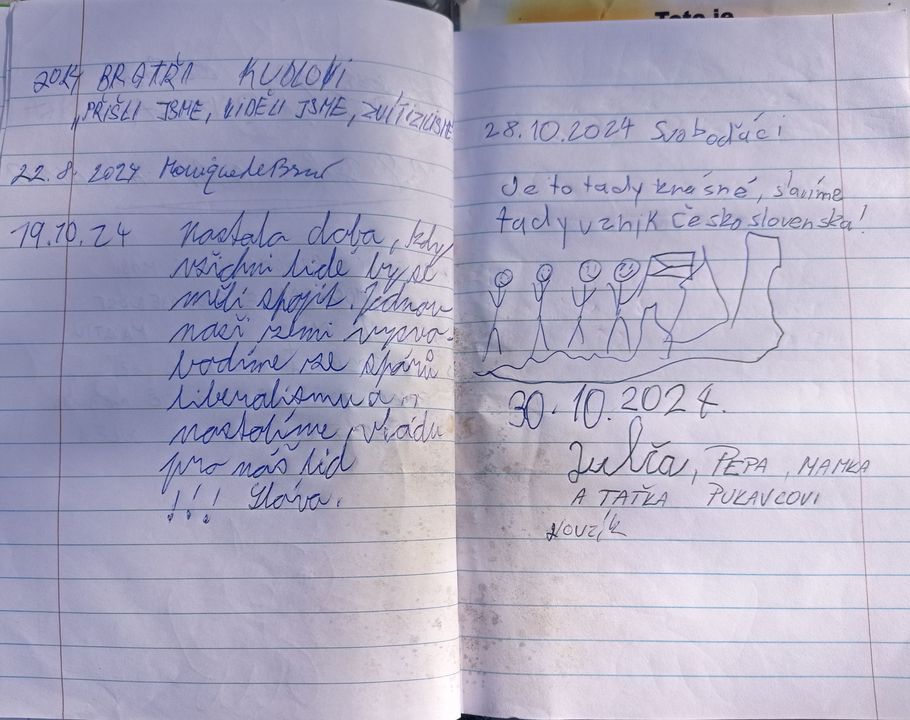 2017 BRATŘI KUDLOVI
"PŘIŠLI JSME, VIDĚLI JSME,
22.8. 2024
19.10.24 Nastala doba, kdy
všichni lidé by se
měli spojit. Jednou
naší zemi vysvo-
bodíme ze spárů
liberalismu a
nastolíme vládu
pro náš lid
!!! Sláva.
Toto je
28.10.2024 Svoboďáci
Je to tady krásné, slavíme
tady vznik Československa!
30.10.2024.
Julča, PEPA, MAMKA
A TAŤKA PUKAVCOVI